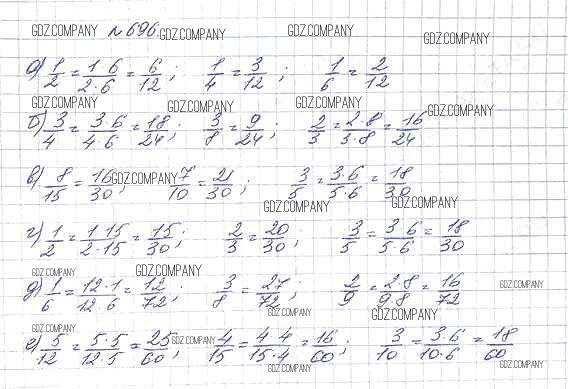 GDZ.COMPANY №696. GDZ.COMPANY GDZ.COMPANY GDZ.COMPANY
а) 1/2 = 1·6/2·6 = 6/12; 1/4 = 3/12; 1/6 = 2/12
GDZ.COMPANY GDZ.COMPANY GDZ.COMPANY GDZ.COMPANY
б) 3/4 = 3·6/4·6 = 18/24; 3/8 = 9/24; 2/3 = 2·8/3·8 = 16/24
в) 8/15 = 16/30; GDZ.COMPANY 7/10 = 21/30; 3/5 = 3·6/5·6 = 18/30
GDZ.COMPANY GDZ.COMPANY
г) 1/2 = 1·15/2·15 = 15/30; 2/3 = 20/30; 3/5 = 3·6/5·6 = 18/30
GDZ.COMPANY GDZ.COMPANY
д) 1/6 = 12·1/12·6 = 12/72; 3/8 = 27/72; 2/9 = 2·8/9·8 = 16/72 GDZ.COMPANY
GDZ.COMPANY GDZ.COMPANY GDZ.COMPANY
е) 5/12 = 5·5/12·5 = 25/60; GDZ.COMPANY 4/15 = 4·4/15·4 = 16/60; 3/10 = 3·6/10·6 = 18/60
GDZ.COMPANY GDZ.COMPANY GDZ.COMPANY